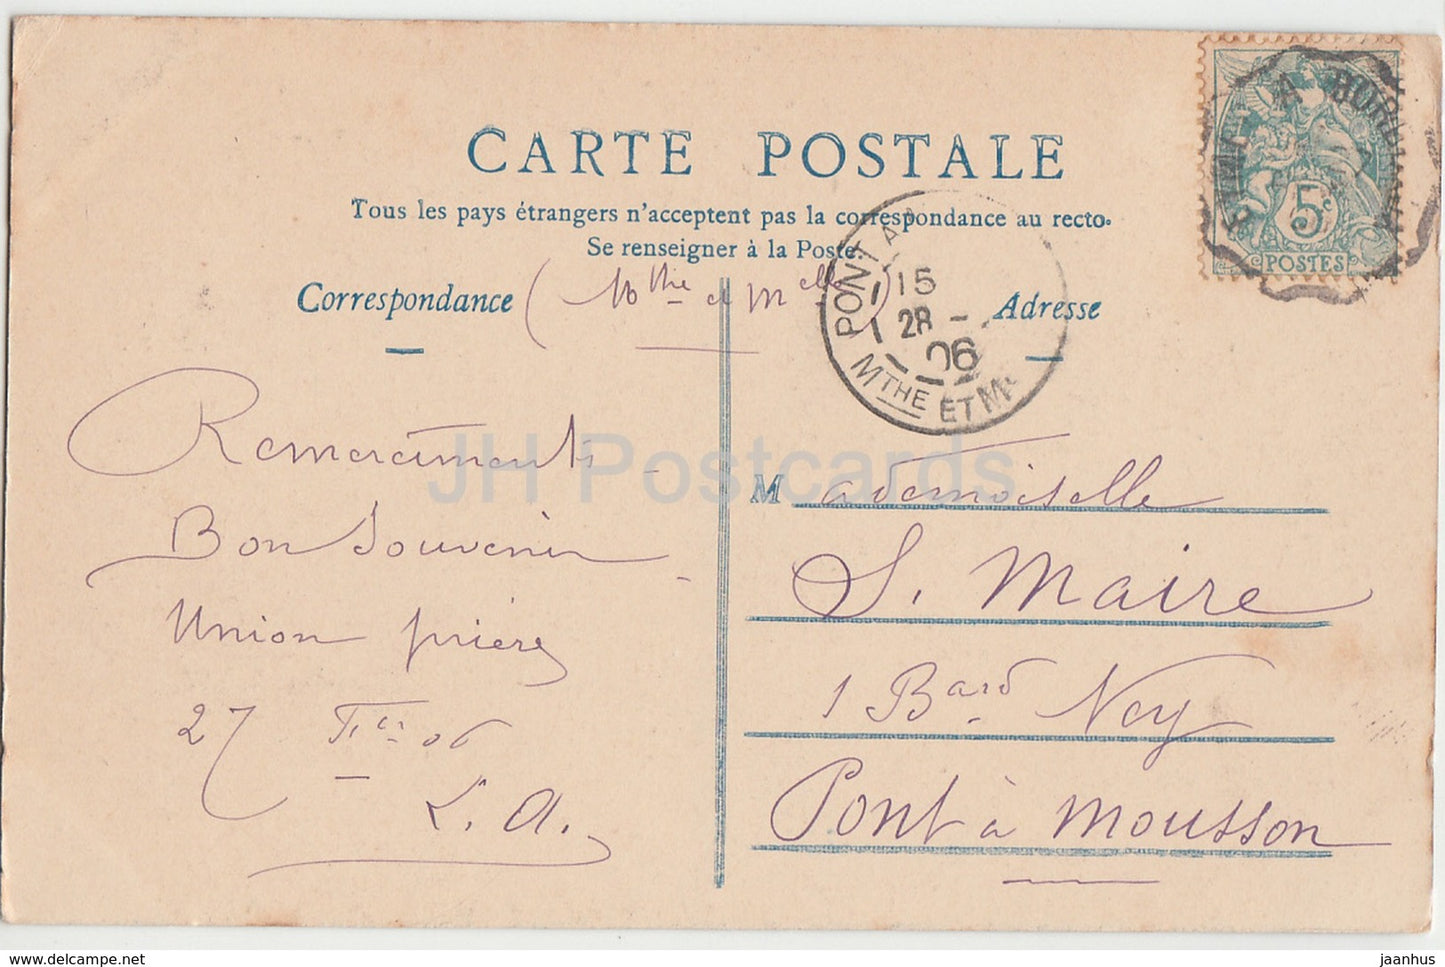 CARTE POSTALE
Tous les pays étrangers n'acceptent pas la correspondance au recto.
Se renseigner à la Poste.
Correspondance
(Mthe et Melle)
Adresse
Remerciements
Bon Souvenir
Union prière
27 Fer 06
L. A.
Mademoiselle
S. Maire
1 Bard Ney
Pont à Mousson
5c
POSTES
PONT A
15
28
06
MTHE ET M
JH Postcards
jaanhus
delcampe.net